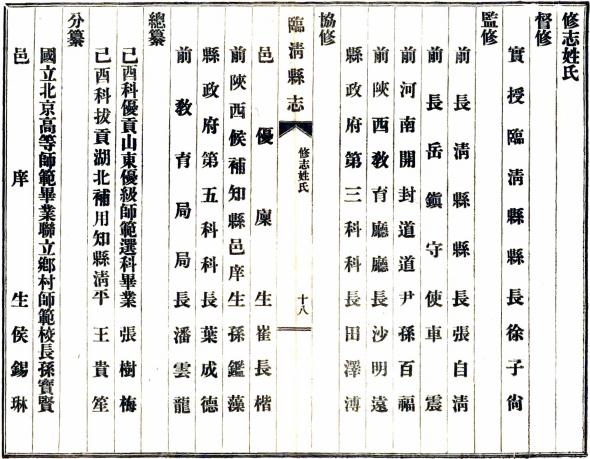 修志姓氏
督修
實授臨清縣縣長徐子尙
監修
前長清縣縣長張自清
前長岳鎭守使車震
前河南開封道道尹孫百福
前陝西敎育廳廳長沙明遠
縣政府第三科科長田澤溥
協修
臨淸縣志
修志姓氏
十八
邑優廩生崔長楷
前陝西候補知縣邑庠生孫鑑藻
縣政府第五科科長葉成德
前敎育局局長潘雲龍
總纂
己酉科優貢山東優級師範選科畢業張樹梅
己酉科拔貢湖北補用知縣淸平王貴笙
分纂
國立北京高等師範畢業聯立鄉村師範校長孫寶賢
邑庠生侯錫琳